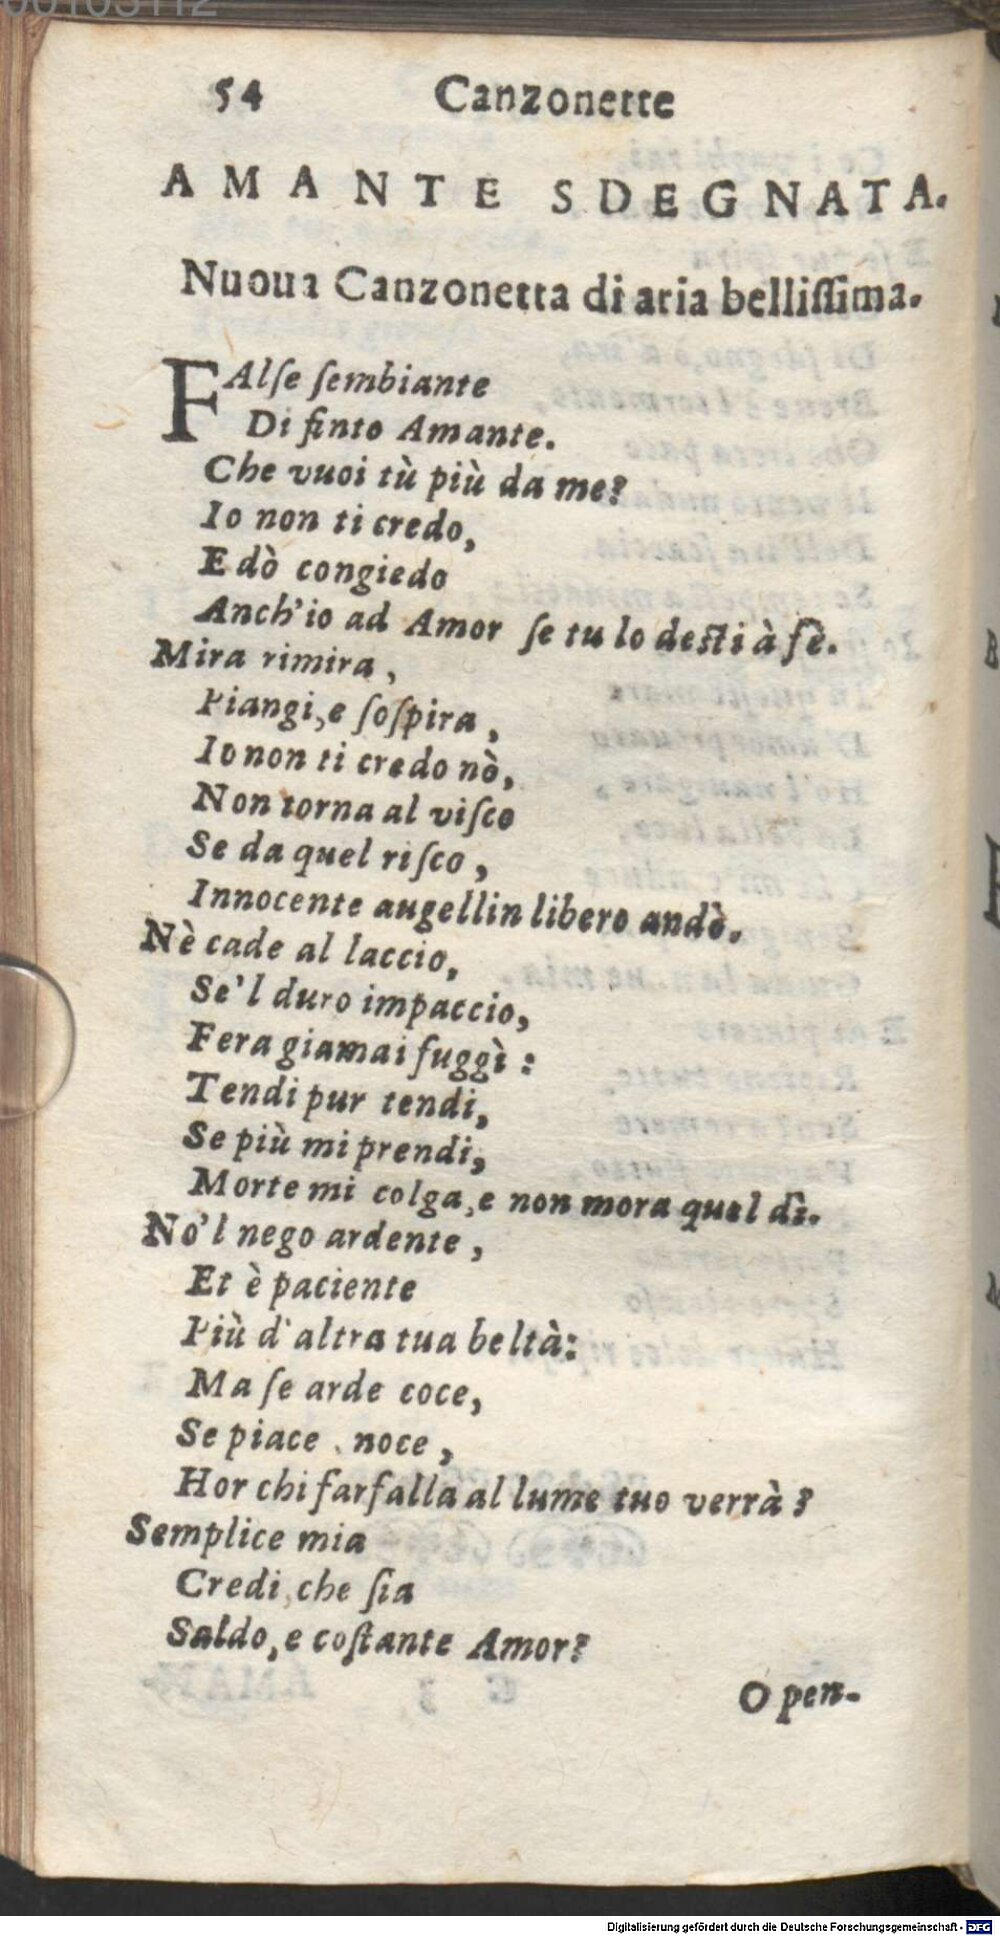 54 Canzonette
AMANTE SDEGNATA.
Nuoua Canzonetta di aria bellissima.
FAlſe ſembiante
Di finto Amante.
Che vuoi tù più da me?
Io non ti credo,
E dò congiedo
Anch'io ad Amor ſe tu lo deſti à fè.
Mira rimira,
Piangi, e ſoſpira,
Io non ti credo nò,
Non torna al viſco
Se da quel riſco,
Innocente augellin libero andò.
Nè cade al laccio,
Se'l duro impaccio,
Fera giamai fuggì:
Tendi pur tendi,
Se più mi prendi,
Morte mi colga, e non mora quel dì.
No'l nego ardente,
Et è paciente
Più d'altra tua beltà:
Ma ſe arde coce,
Se piace, noce,
Hor chi farfalla al lume tuo verrà?
Semplice mia
Credi, che ſia
Saldo, e coſtante Amor?
O pen-
Digitalisierung gefördert durch die Deutsche Forschungsgemeinschaft - DFG